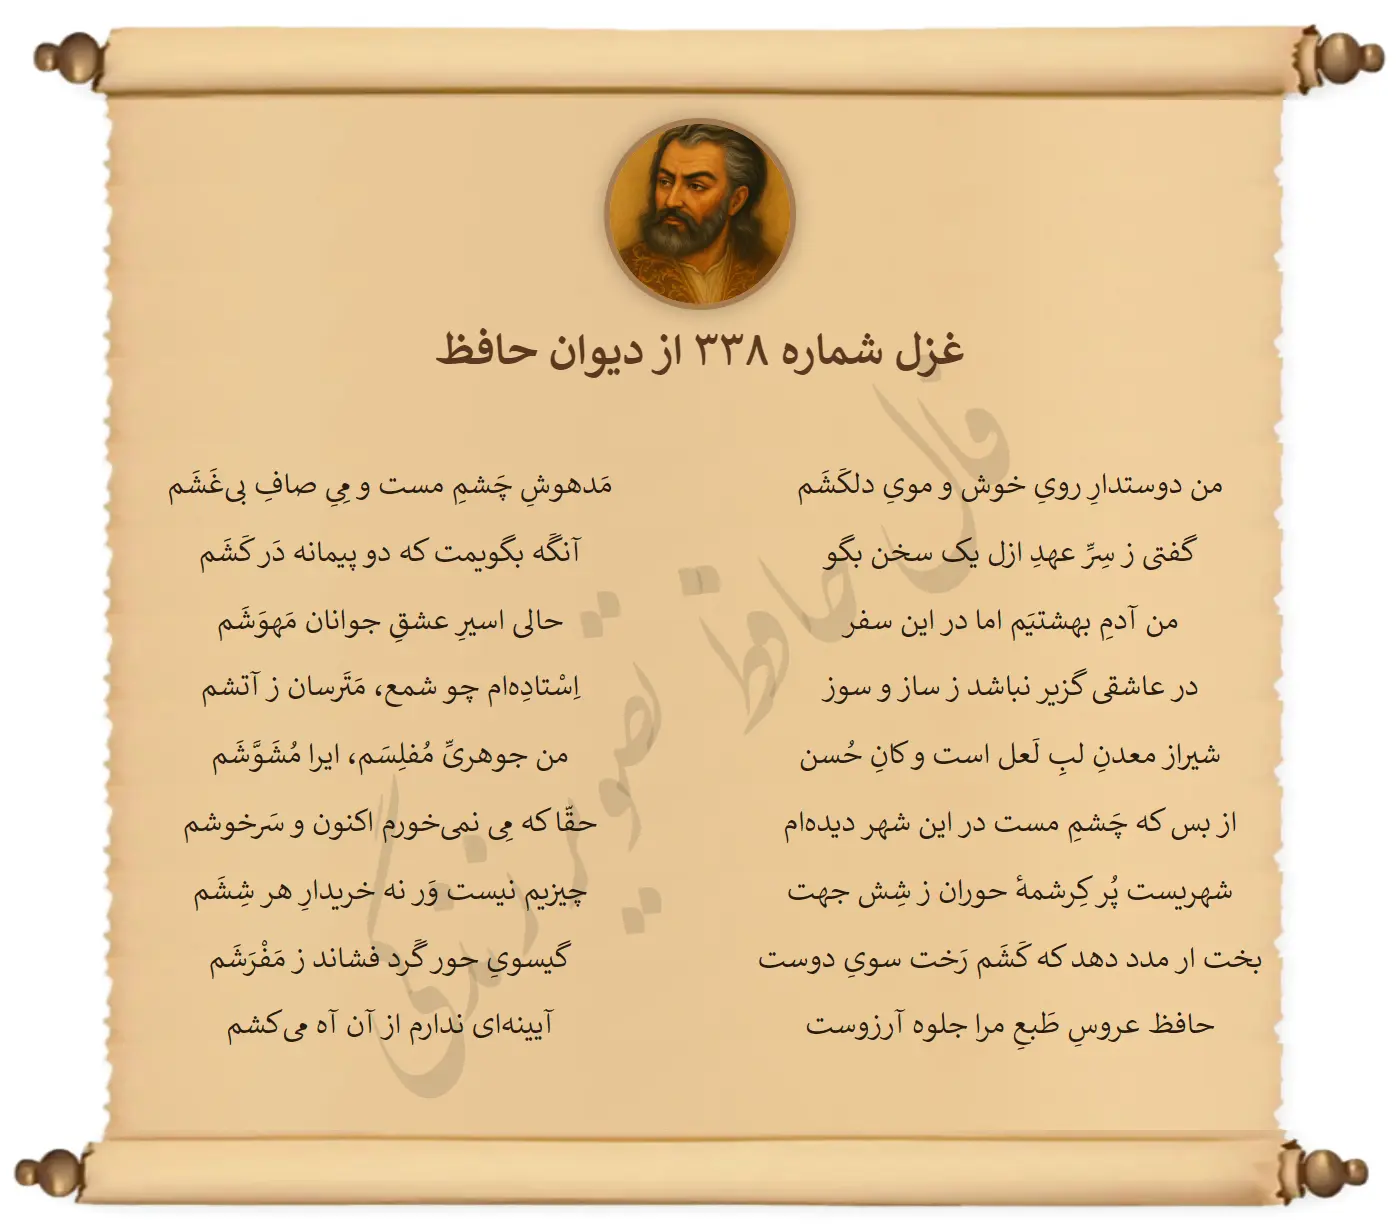 غزل شماره ۳۳۸ از دیوان حافظ
من دوستدارِ رویِ خوش و مویِ دلکَشَم
مَدهوشِ چَشمِ مست و مِیِ صافِ بی‌غَشَم
گفتی ز سِرِّ عهدِ ازل یک سخن بگو
آنگَه بگویمت که دو پیمانه دَر کَشَم
من آدمِ بهشتیَم اما در این سفر
حالی اسیرِ عشقِ جوانان مَهوَشَم
در عاشقی گزیر نباشد ز ساز و سوز
اِسْتادِه‌ام چو شمع، مَتَرسان ز آتشم
شیراز معدنِ لبِ لَعل است و کانِ حُسن
من جوهریِّ مُفلِسَم، ایرا مُشَوَّشَم
از بس که چَشمِ مست در این شهر دیده‌ام
حقّا که مِی نمی‌خورم اکنون و سَرخوشم
شهریست پُر کِرشمهٔ حوران ز شِش جهت
چیزیم نیست وَر نه خریدارِ هر شِشَم
بخت ار مدد دهد که کَشَم رَخت سویِ دوست
گیسویِ حور گَرد فشاند ز مَفْرَشَم
حافظ عروسِ طَبعِ مرا جلوه آرزوست
آیینه‌ای ندارم از آن آه می‌کشم
فال حافظ تصویر زندگی